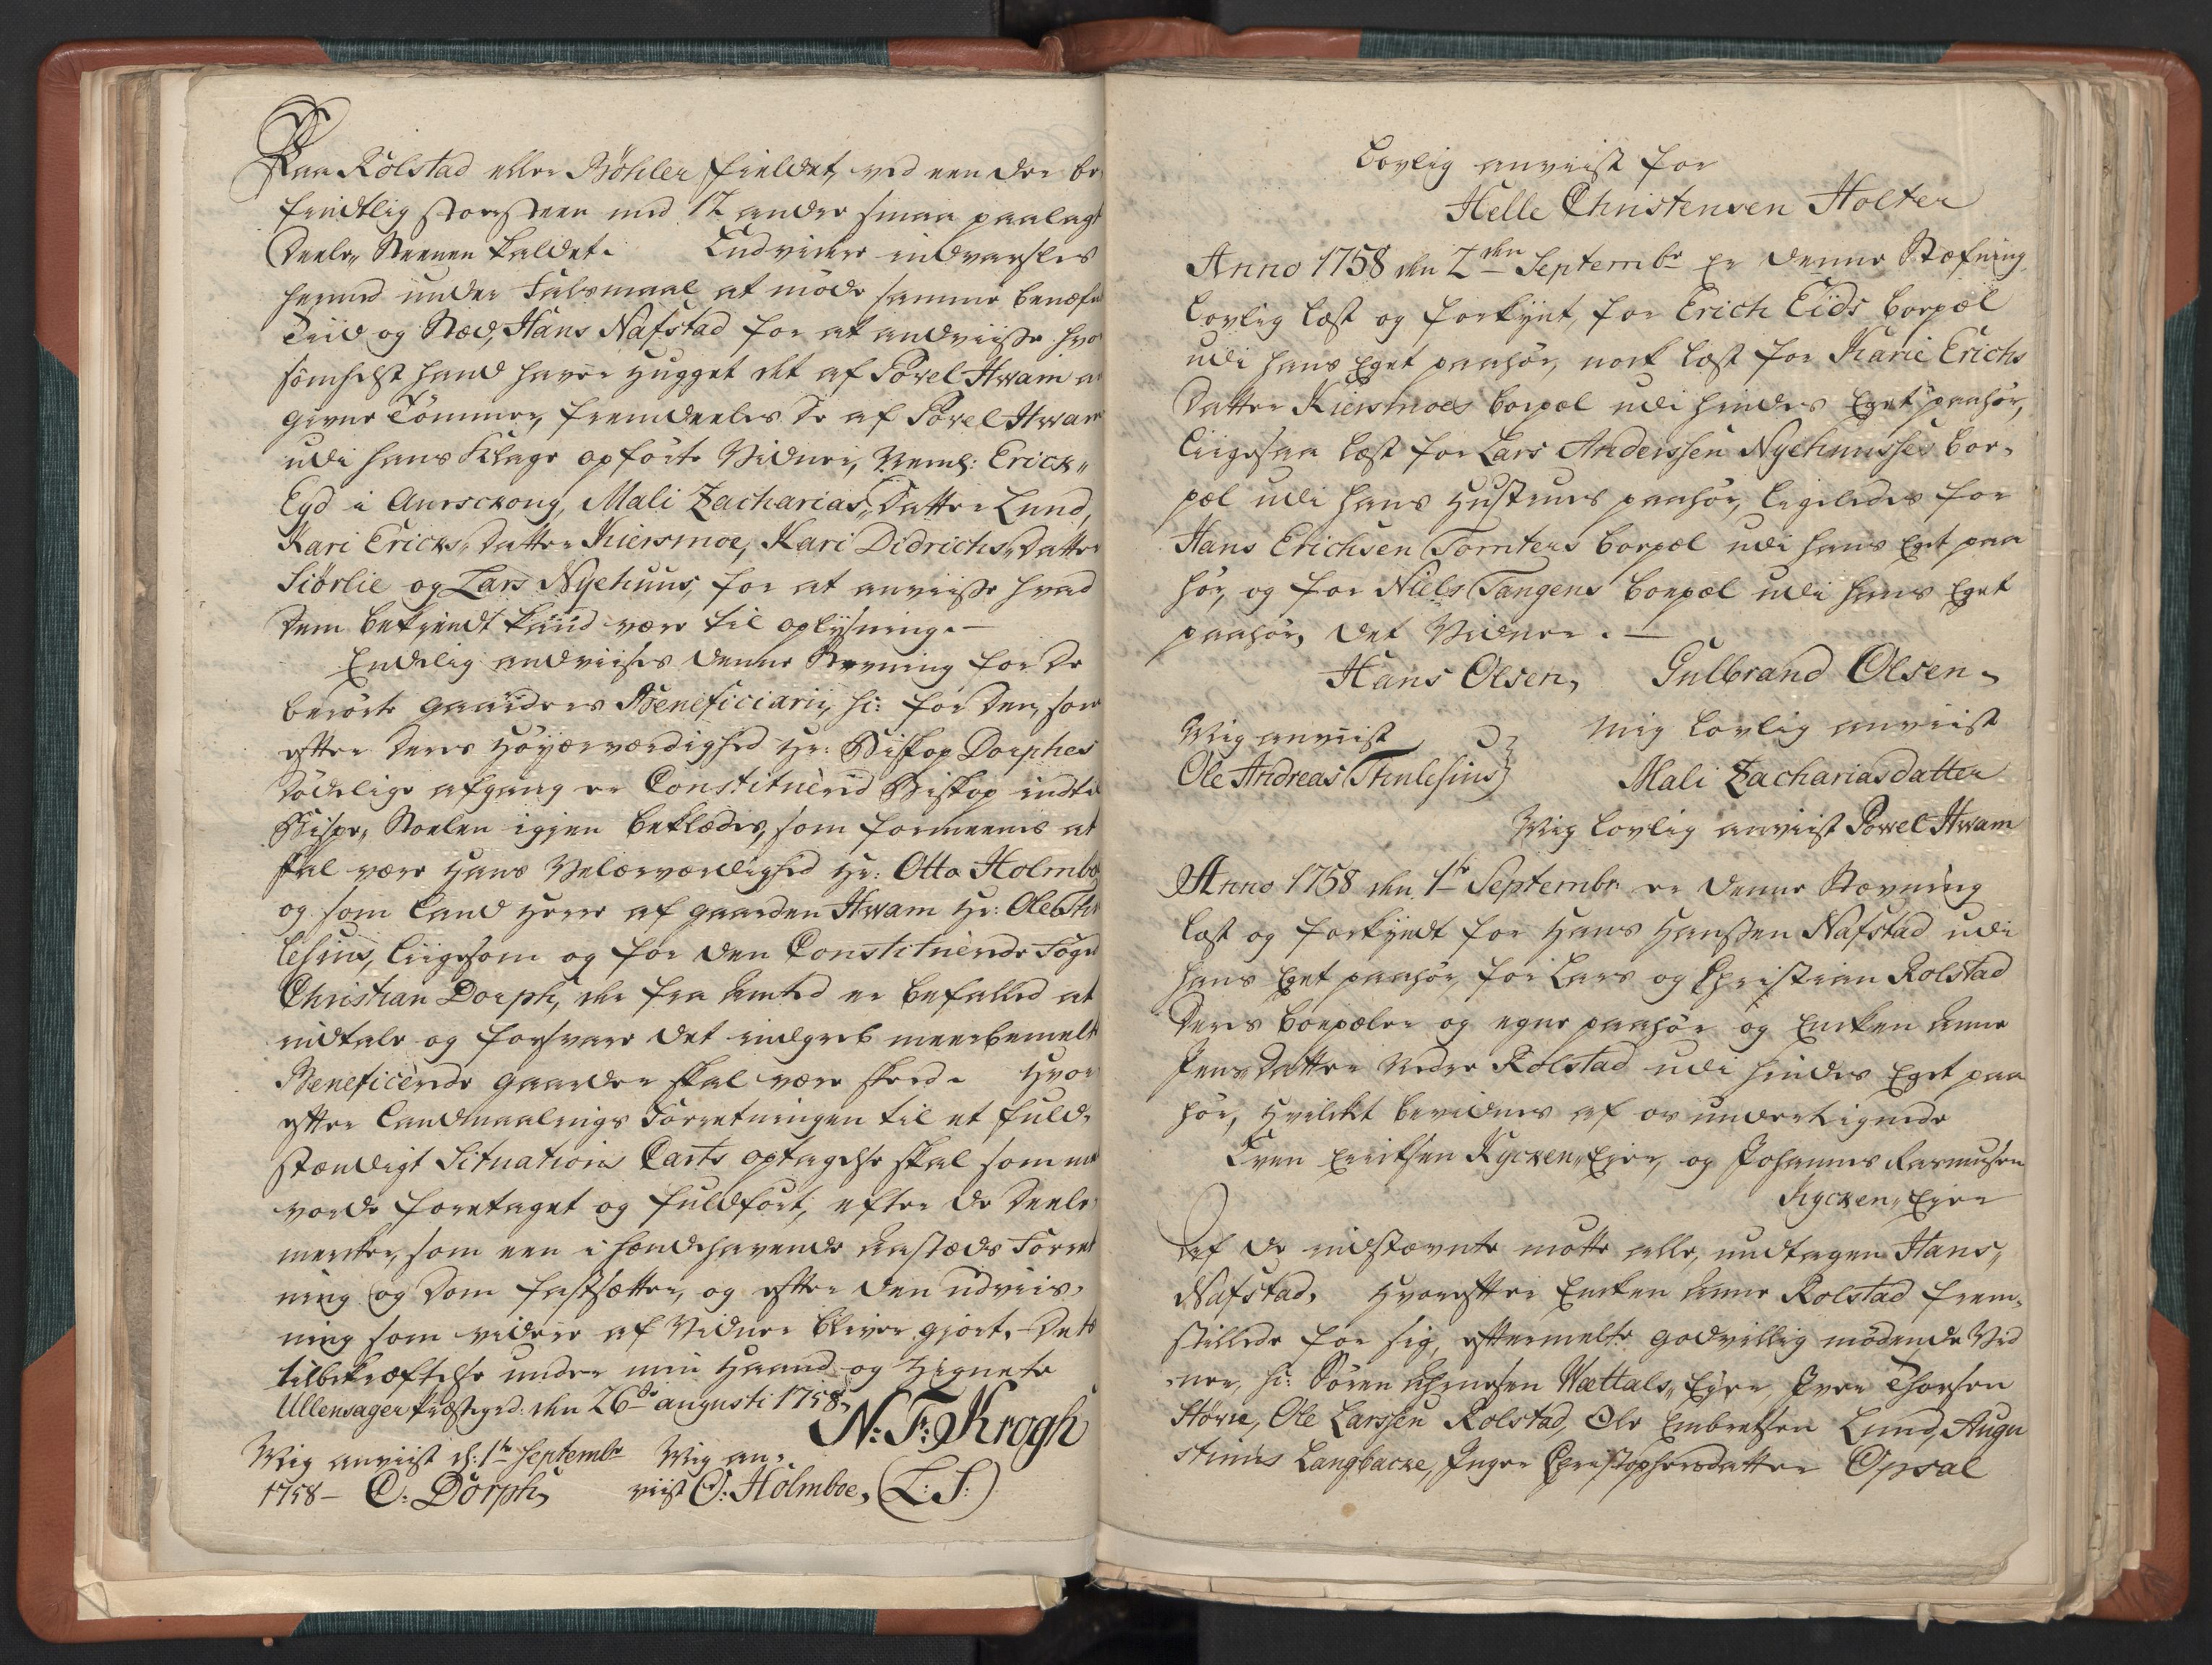 Paa Rolstad eller Böhler fieldet, ved een der be-
findtlig storsteen med 12 andre smaa paalagt
Deele„ Steenen kaldet. Endvidere indvarsles
hermed under Falsmaal at möde samme benæfnte
Tiid og Stæd, Hans Nafstad for at andviisse hvor
sömhelst hand haver hugget det af Povel Hwam an
givne Tömmer, fremdeeles de af Povel Hwam
udi hans Klage opförte Vidner, Neml: Erick„
Eyd i Aurschoug, Mali Zacharias„ datter Lund,
Kari Ericks„ datter Kiersmoe, Kari Didrichs„ datter
Siörlie og Lars Nyehuus, for at anviisse hvad
dem bekiendt kand være til oplysning. —
Endelig andviises denne Stevning for de
berörte gaarders Beneficiarii, hi: for den, som
efter Deres Höyærværdighed Hr: Biskop Dorphes
dödelige afgang er Constituerid Biskop indtil
Bispe„ Stoelen igien beklædes, som formeenes at
skal være Hans Velærværdighed Hr: Otto Holmboe
og som Land Herre af gaarden Hwam Hr: Ole Thi
lesius, liigesom og for den Constituerede Fogd
Christian Dorph, der fra Amted er befalled at
indtale og forsvare det indgreb meerbemelte
Beneficerede gaarder skal være skeed. Hvor
efter Landmaalings Forretningen til et fuld-
stændigt Situations Carts optagelse skal som
vorde foretaget og fuldfört, efter de Deele
mercker, som een i hændehavende Aastæds Forret
ning og Dom fastsætter, og efter den udviis-
ning som videre af Vidner bliver giort. Dets
tilbekræftelse under min Haand og Zignete
Ullensager Præstegrd: den 26de augusti 1758,
N: F: Krogh
Mig anviist d: 1te Septembr Mig an-
1758 — C: Dorph, viist O: Holmboe, (L: S:)
Lovlig anviist for
Helle Christensen Holter
Anno 1758 den 2den Septembr er denne Stæfning
lovlig læst og forkynt, for Erich Eids boepæl
udi hans Eget paahör, nock læst for Karie Erichs
datter Kiersmoes boepæl udi hindes Eget paahör,
liigesaa læst for Lars Anderssen Nyehuusses boe-
pæl udi hans Hustrues paahör, ligeledes for
Hans Erichsen Tomters boepæl udi hans Eget paa
hör, og for Niels Tangens boepæl udi hans Eget
paahör, det Vidner. —
Hans Olsen, Gulbrand Olsen,
Mig anviist Mig lovlig anviist
Ole Andreas Thilesius Mali Zachariasdatter
Mig lovlig anviist Powel Hwam
Anno 1758 den 1te Septembr: er denne Stævning
læst og forkyndt for Hans Hanssen Nafstad udi
hans Eget paahör, for Lars og Christian Rolstad
Deres boepæler og egne paahör og Encken Anne
Jens„ datter Nedre Rolstad udi hindes Eget paa
hör, Hvilckt bevidnes af os undertegnede
Even Erichsen Kycken„ Eyer, og Johannes Rasmusen
Kycken„ Eyer
Af de indstævnte mötte alle, undtagen Hans„
Nafstad, Hvorefter Encken Anne Rolstad frem-
stillede for sig, eftermelte godvillig mödende Vid
ner, hi: Sören Vættals„ Eyer, Iver Thorsen
Hovie, Ole Larssen Rolstad, Ole Embretsen Lund, Augu
stinus Langbacke, Inger Christophersdatter Opsal